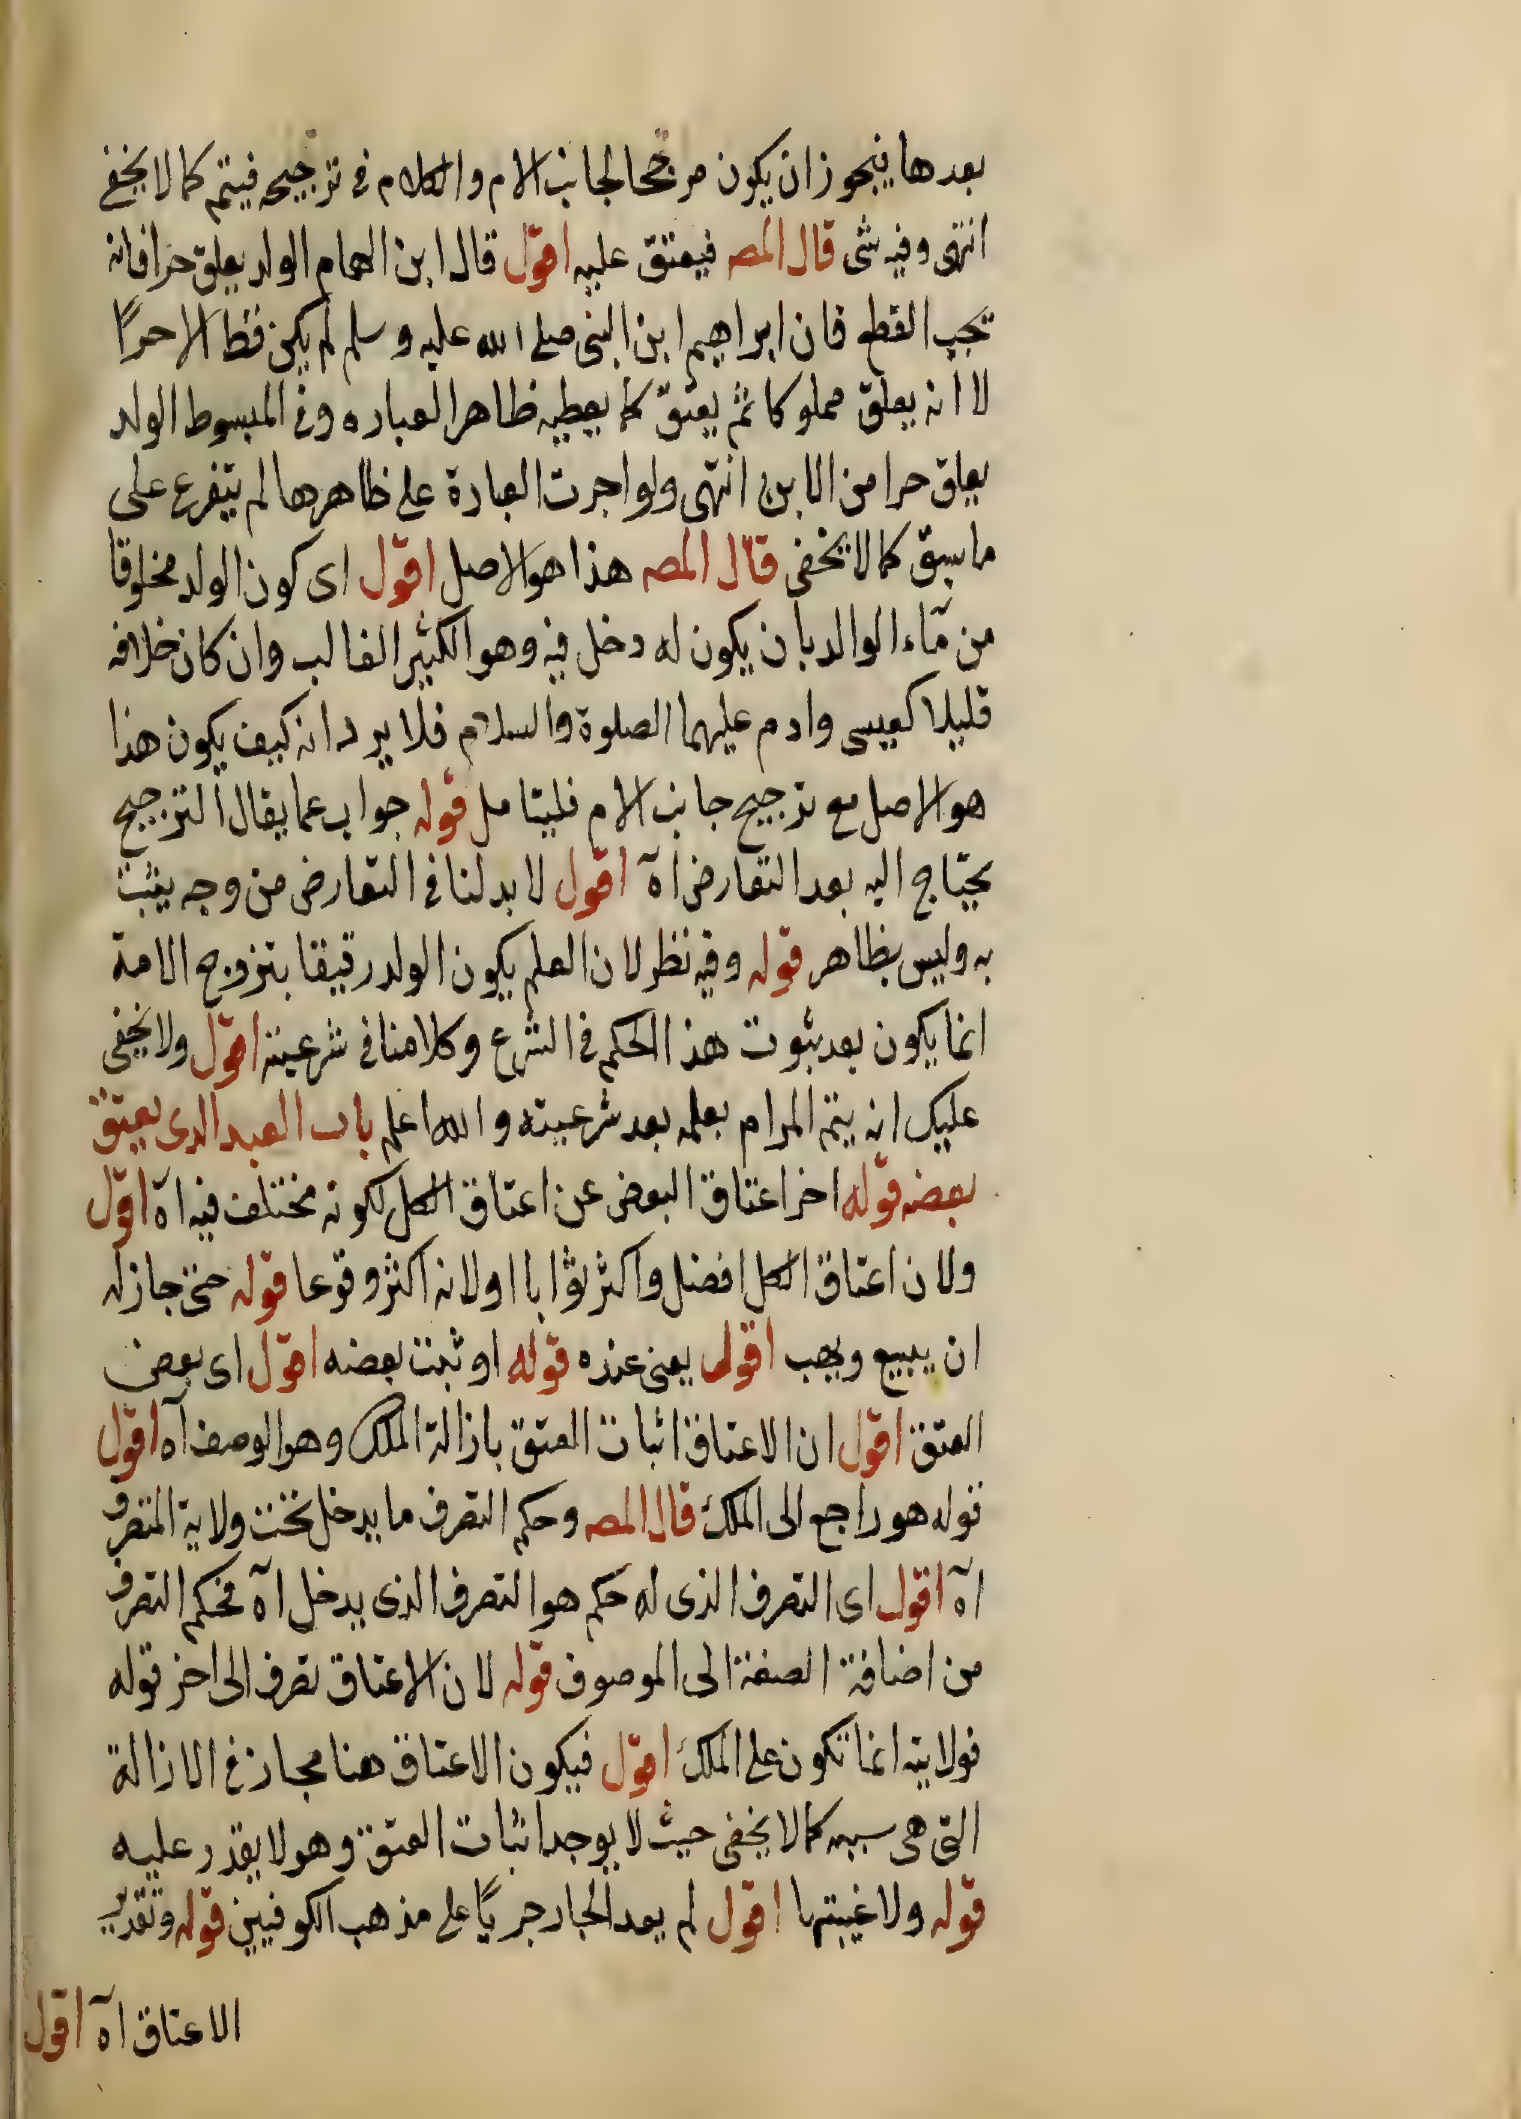 بعدها فيجوز ان يكون مرجحا لجانب الام والكلام فى ترجيحه فيتم كما لا يخفى
انتهى وفيه شئ قال المصـ فيعتق عليه اقول قال ابن الهمام الولد يعلق حرا فانه
يجب القطع فان ابراهيم ابن النبى صلى الله عليه وسلم لم يكن قط الا حرًا
لا انه يعلق مملوكا ثم يعتق كما يعطيه ظاهر العباره وفى المبسوط الولد
يعلق حرا من الابن انتهى ولو اجرت العبارة على ظاهرها لم يتفرع على
ما سبق كما لا يخفى قال المصـ هذا هو الاصل اقول اى كون الولد مخلوقا
من مآء الوالد بان يكون له دخل فيه وهو الكثير الغالب وان كان خلافه
قليلا كعيسى وادم عليهما الصلوة والسلام فلا يرد انه كيف يكون هذا
هو الاصل مع ترجيح جانب الام فليتامل قوله جواب عما يقال الترجيح
يحتاج اليه بعد التعارض اه اقول لا بد لنا فى التعارض من وجه يثبت
به وليس بظاهر قوله وفيه نظر لان العلم بكون الولد رقيقا بتزوج الامة
انما يكون بعد ثبوت هذا الحكم فى الشرع وكلامنا فى شرعيته اقول ولا يخفى
عليك انه يتم المرام بعلمه بعد شرعيته والله اعلم باب العبد الذى يعتق
بعضه قوله اخر اعتاق البعض عن اعتاق الكل لكونه مختلف فيه اه اقول
ولان اعتاق الكل افضل واكثر ثوابا او لانه اكثر وقوعا قوله حتى جاز له
ان يبيع ويهب اقول يعنى عنده قوله او ثبت بعضه اقول اى بعض
العتق اقول ان الاعتاق اثبات العتق بازالة الملك وهو الوصف اه اقول
قوله هو راجع الى الملك قال المصـ وحكم التصرف ما يدخل تحت ولاية المتصرف
اه اقول اى التصرف الذى له حكم هو التصرف الذى يدخل اه فحكم التصرف
من اضافة الصفة الى الموصوف قوله لان الاعتاق تصرف الى اخر قوله
فولايته انما تكون على الملك اقول فيكون الاعتاق هنا مجاز فى الازالة
التى هى سببه كما لا يخفى حيث لا يوجد اثبات العتق وهو لا يقدر عليه
قوله ولا غيبتها اقول لم يعد الجار جريًا على مذهب الكوفيين قوله وتقدير
الاعتاق اه اقول